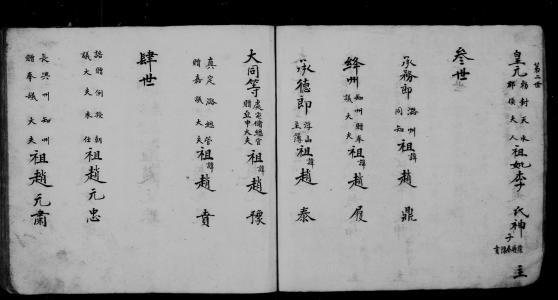 第二世
皇元勅封天水郡侯夫人祖妣李氏神主
叁世
承務郎潞州同知祖諱趙鼎
絳州知州贈奉議大夫祖諱趙履
承德郎浮山主簿祖諱趙泰
大同等處總管贈亞中大夫祖諱趙豫
真定潞總管贈嘉議大夫祖諱趙賁
肆世
誥贈朝議大夫未仕祖趙元忠
長州知州贈奉議大夫祖趙元肅